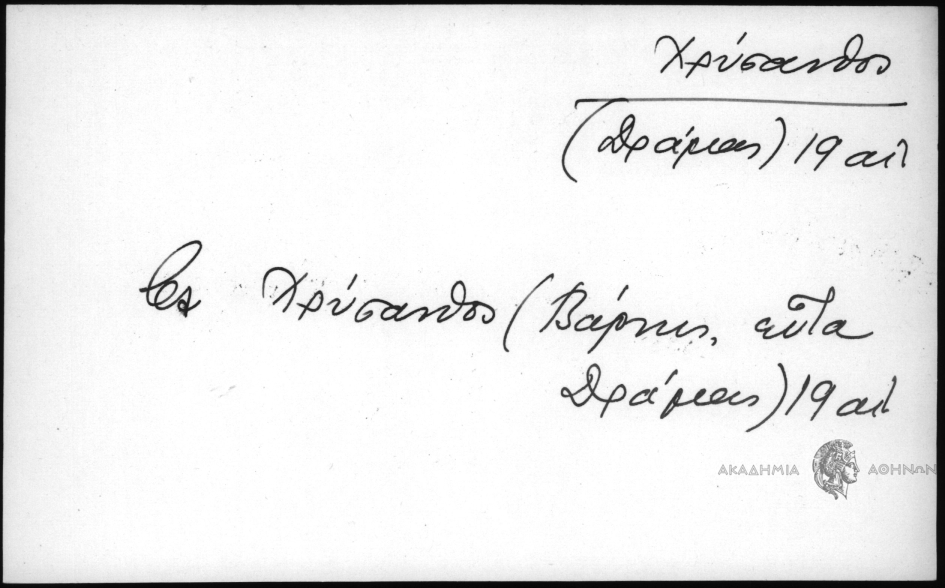 Χρύσανθος
(Δράμας) 19 αἰ
Χρύσανθος (Βάρνης, εἶτα
Δράμας) 19 αἰ
ΑΚΑΔΗΜΙΑ ΑΘΗΝΩΝ